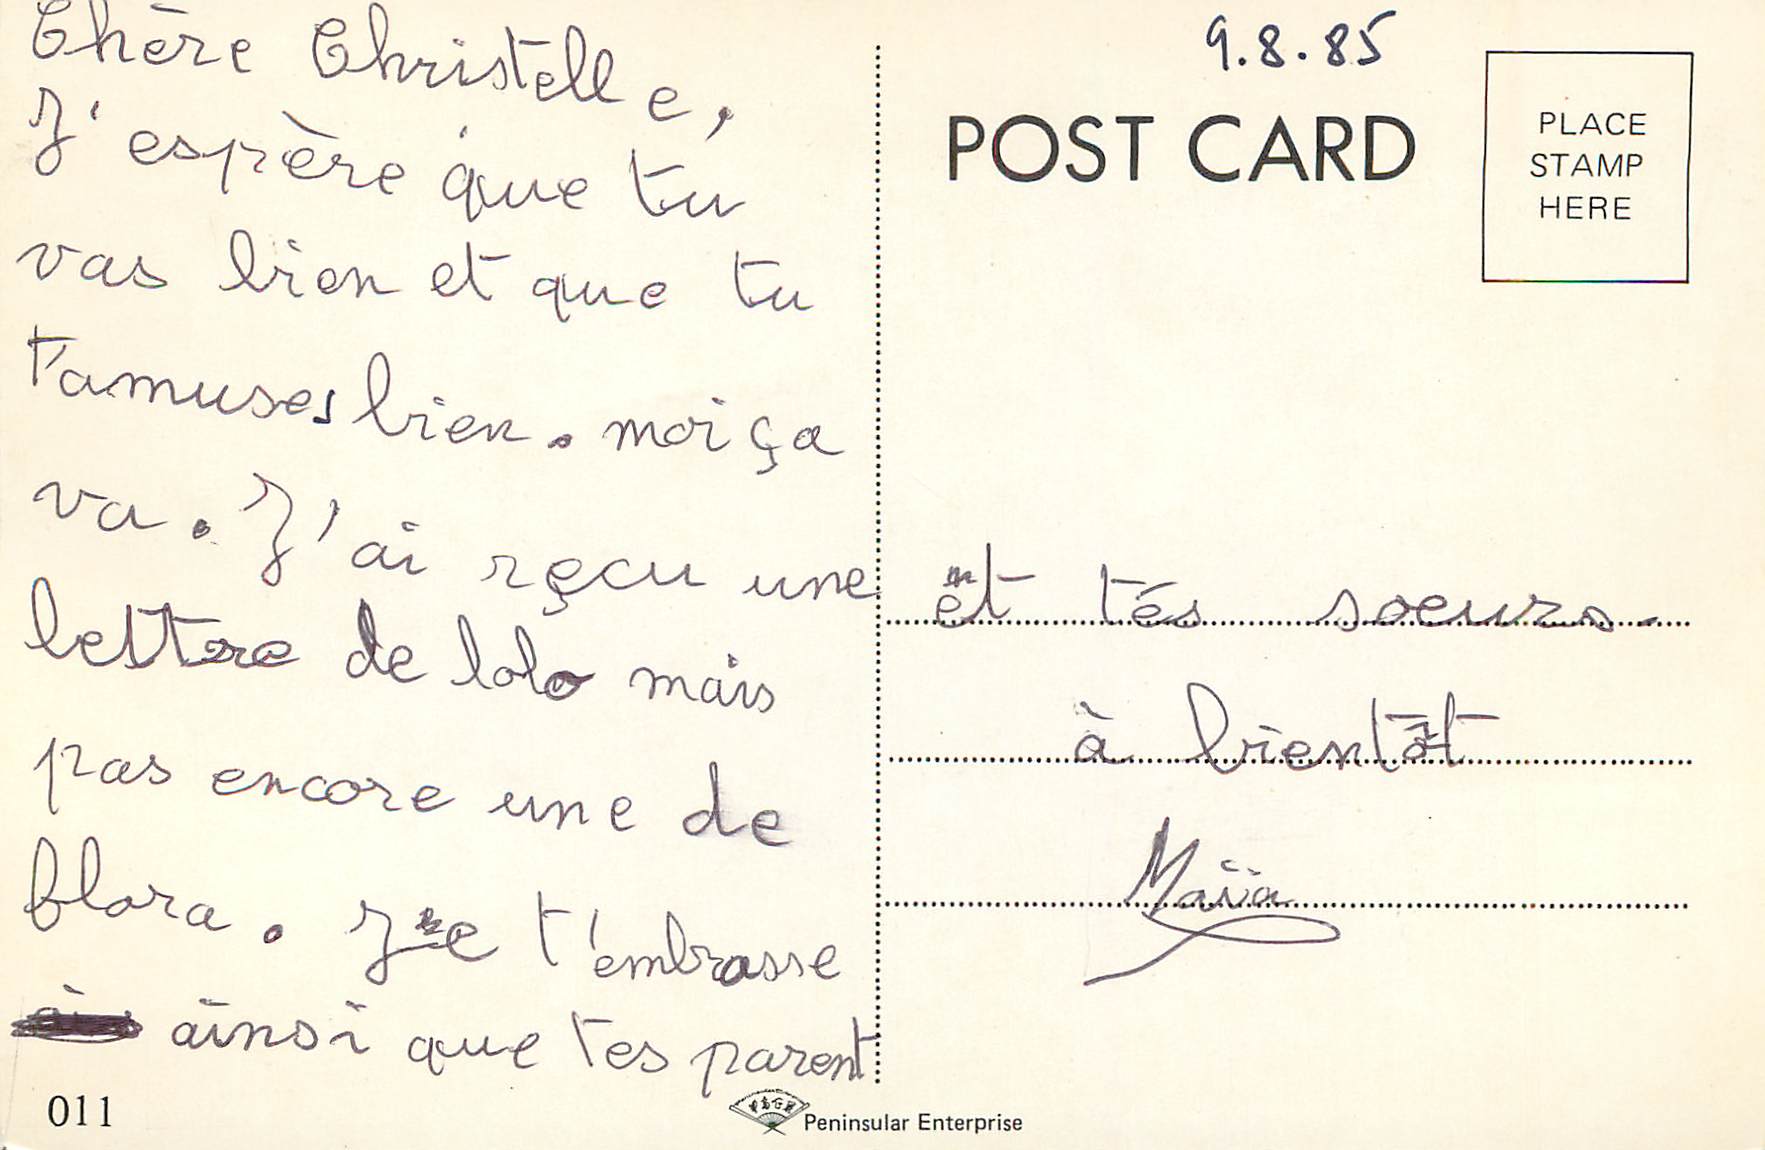 Chère Christelle,
J'espère que tu
vas bien et que tu
t'amuses bien. moi ça
va. J'ai reçu une
lettre de lolo mais
pas encore une de
flora. Je t'embrasse
ainsi que tes parent
011
Peninsular Enterprise
9.8.85
POST CARD
PLACE
STAMP
HERE
et tés soeurs.
à bientôt
Maïa